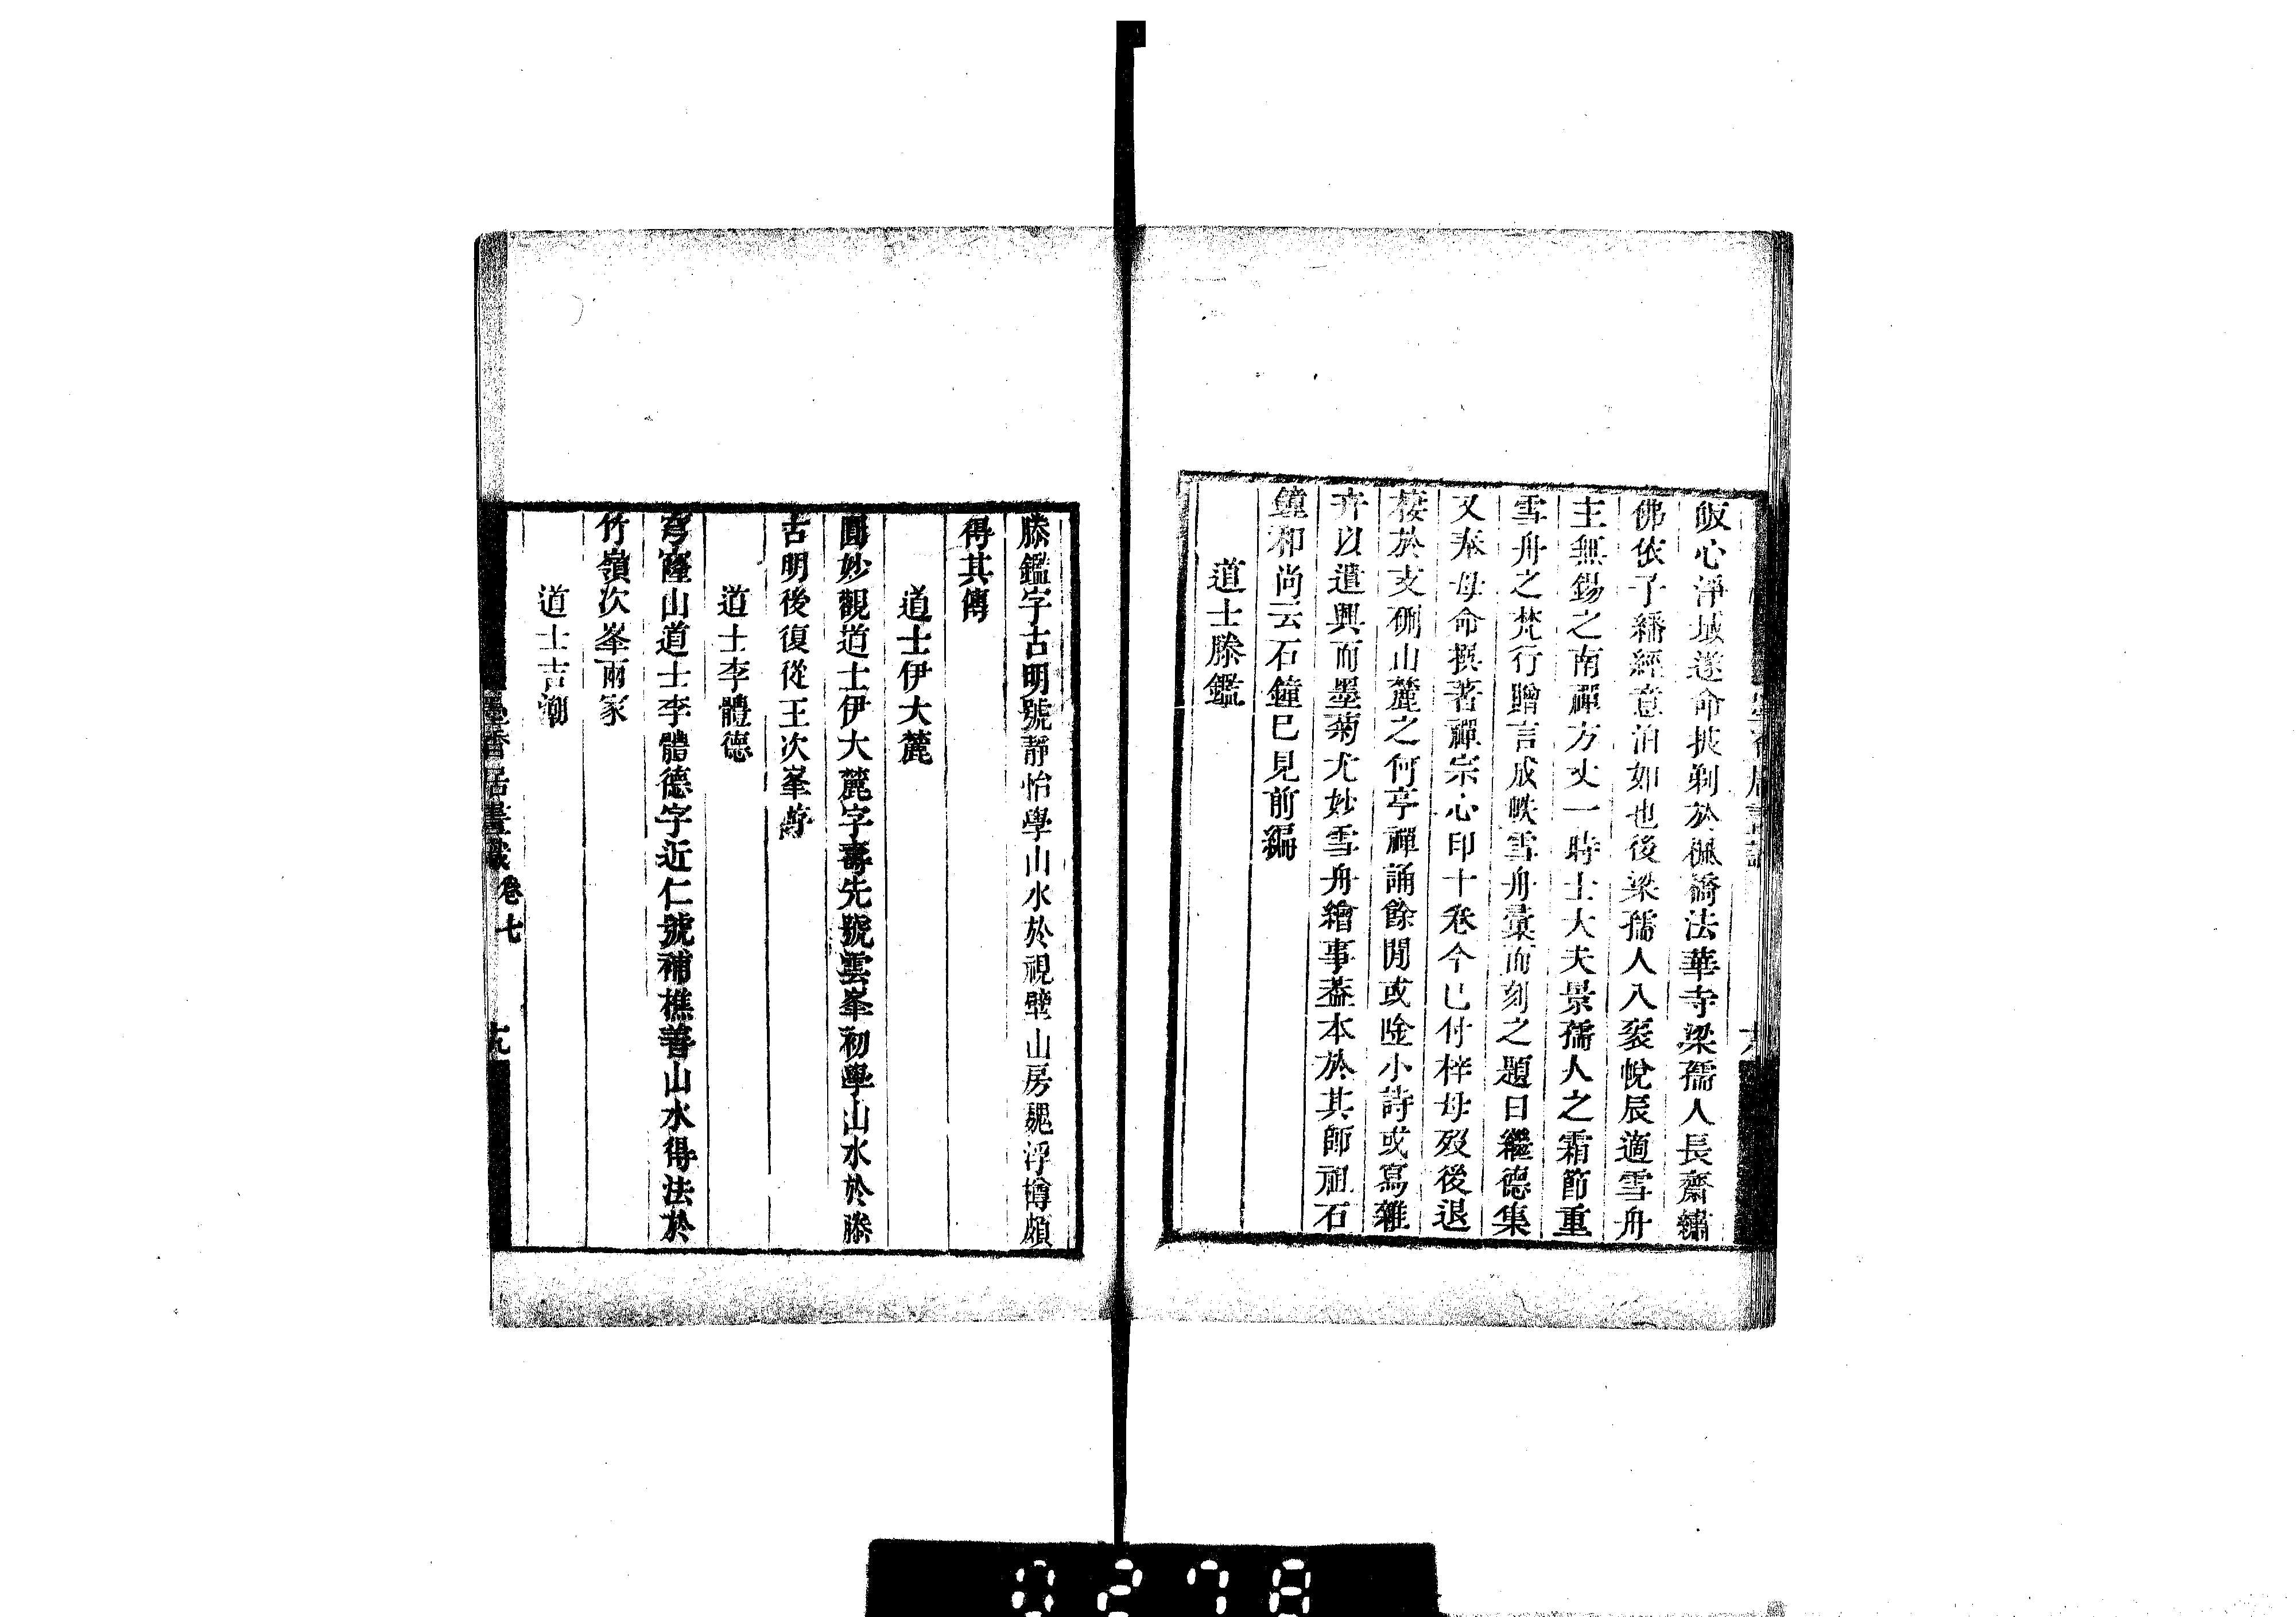 皈心淨域遂命披剃於楓橋法華寺梁孺人長齋繡
佛依子繙經意泊如也後梁孺人八袠帨辰適雪舟
主無錫之南禪方丈一時士大夫景孺人之霜節重
雪舟之梵行贈言成帙雪舟彙而刻之題曰繼德集
又奉母命撰著禪宗心印十卷今已付梓母歿後退
棲於支硎山麓之何亭禪誦餘閒或唫小詩或寫雜
卉以遣興而墨菊尤妙雪舟繪事葢本於其師祖石
鐘和尚云石鐘巳見前編
道士滕鑑
滕鑑字古明號靜怡學山水於視壁山房魏浮樽頗
得其傳
道士伊大麓
圓妙觀道士伊大麓字壽先號雲峯初學山水於滕
古明後復從王次峯游
道士李體德
穹窿山道士李體德字近仁號補樵善山水得法於
竹嶺次峯兩家
道士吉潮
墨香居畫識 卷七 十九
0278